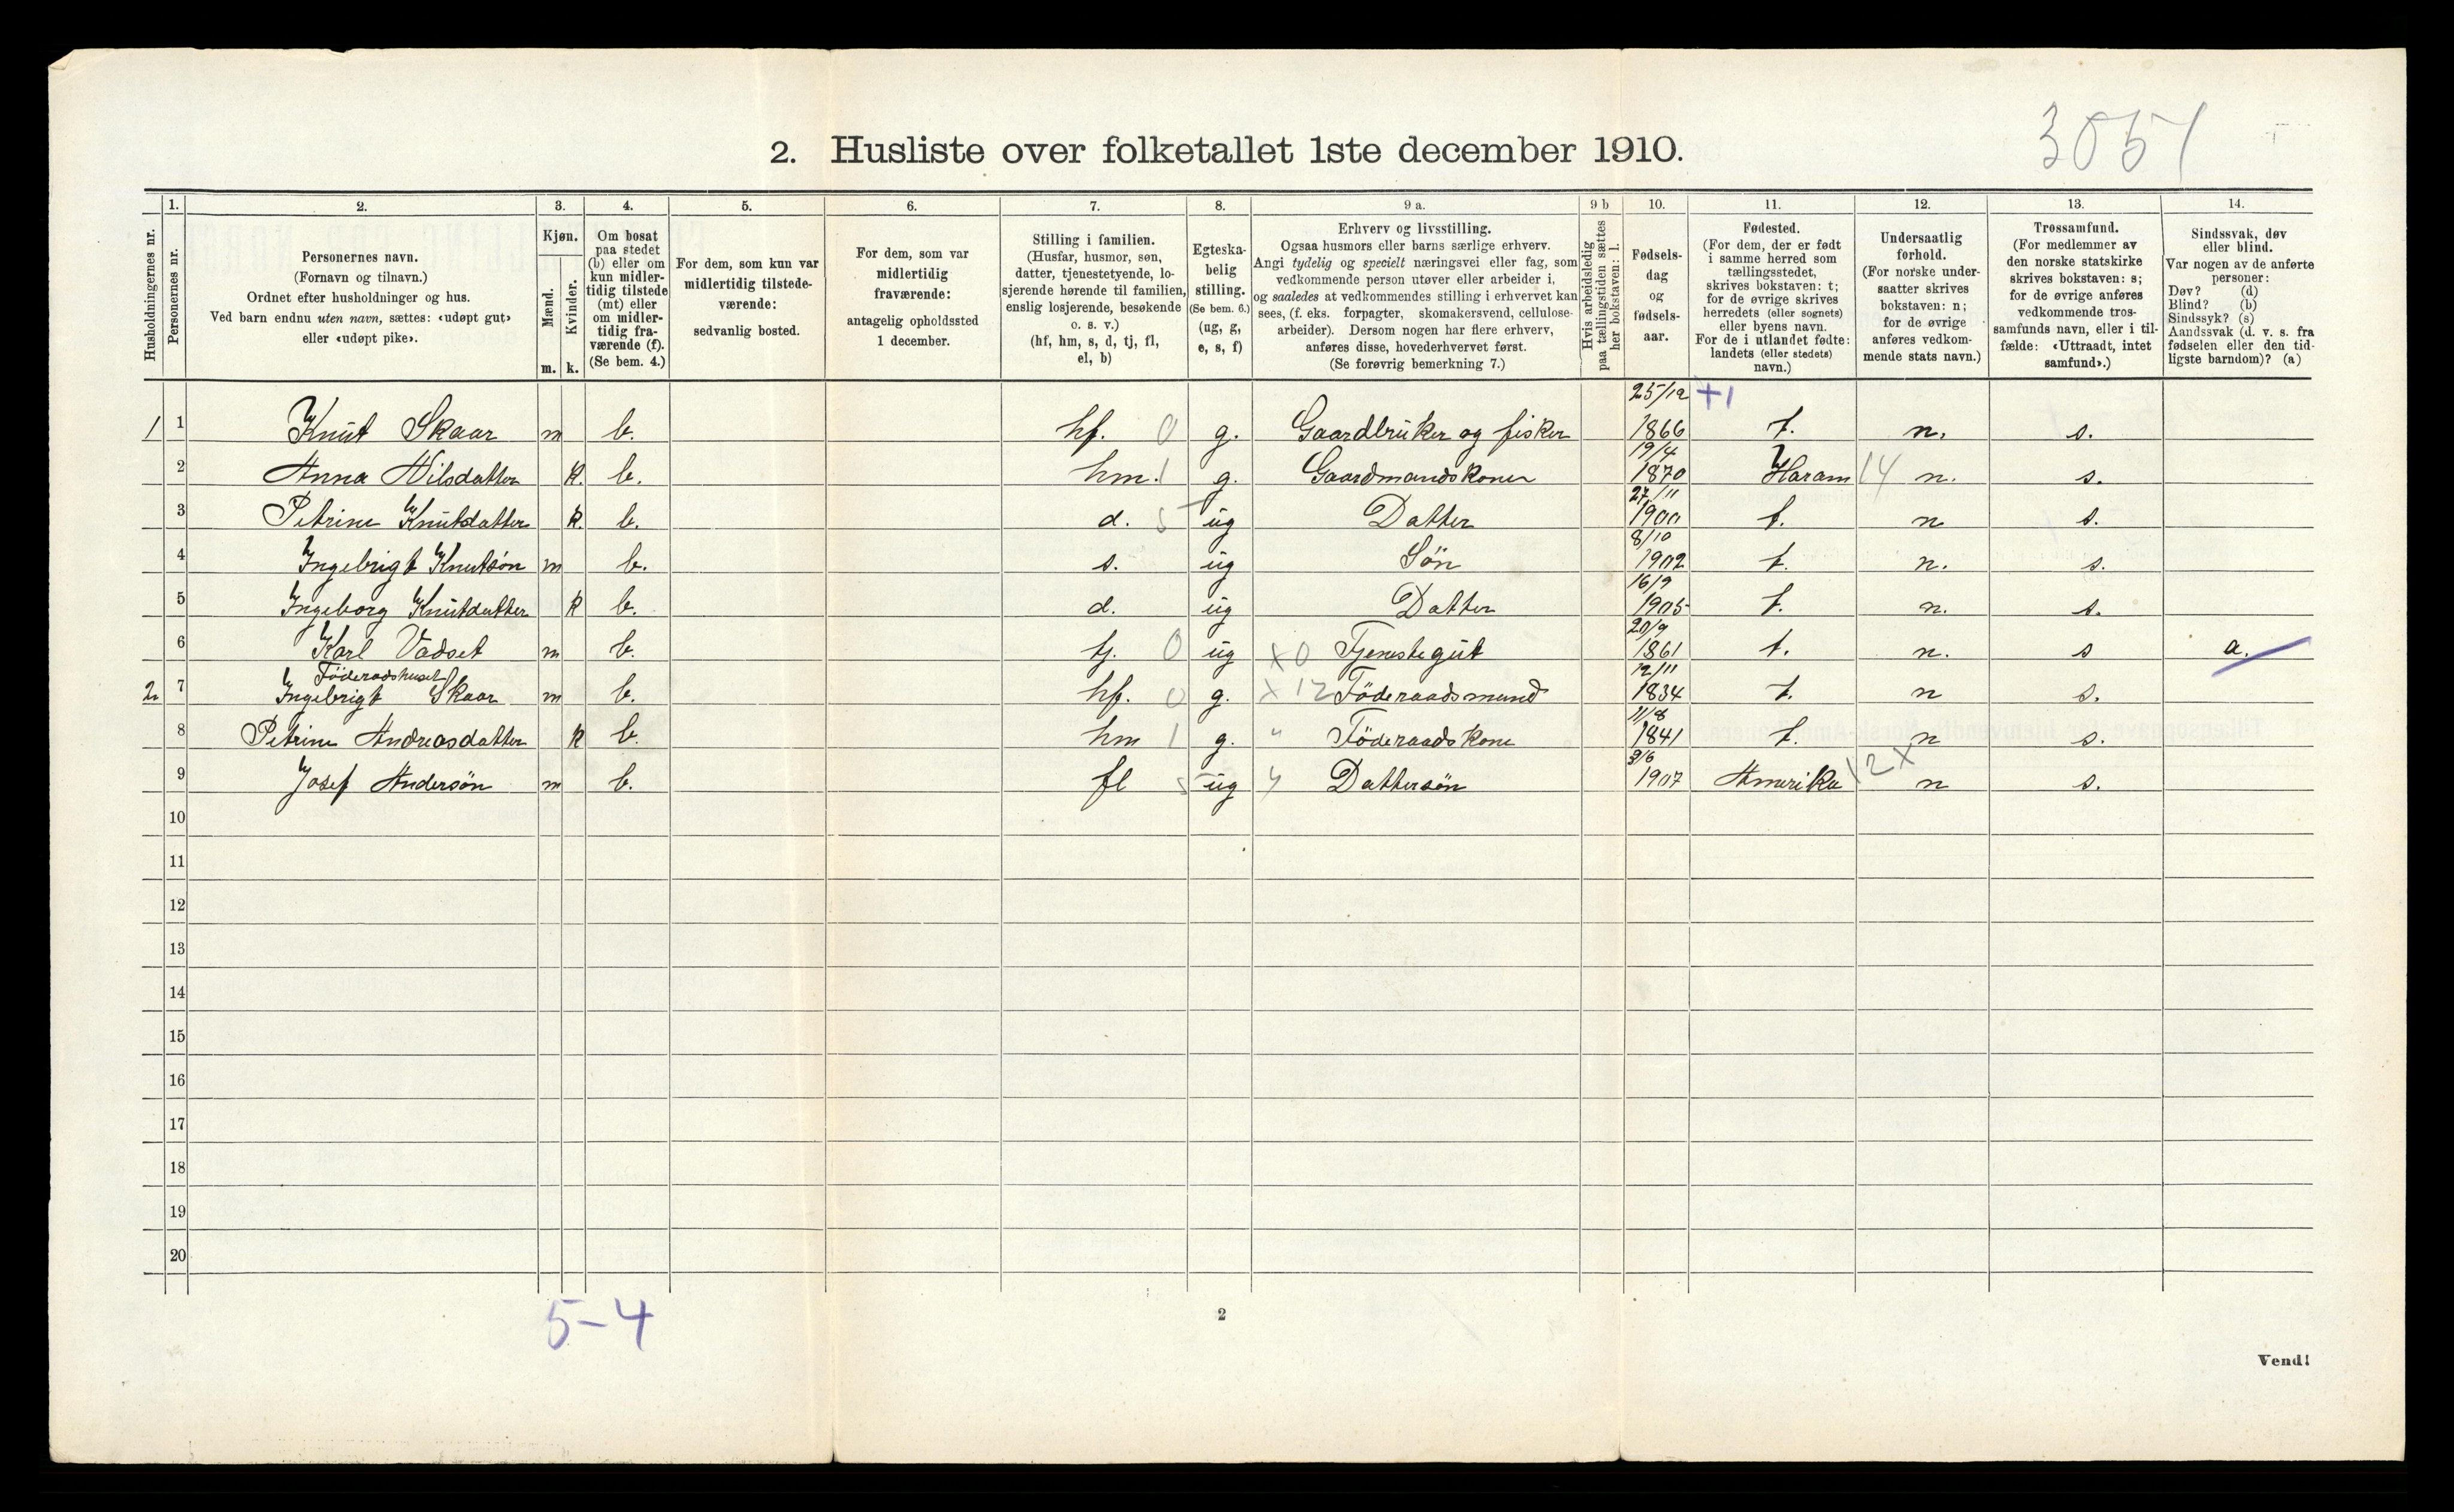 3051
2. Husliste over folketallet 1ste december 1910.
Husholdningernes nr.
1.
Personernes nr.
2.
Personernes navn.
(Fornavn og tilnavn.)
Ordnet efter husholdninger og hus.
Ved barn endnu uten navn, sættes: «udøpt gut»
eller «udøpt pike».
3.
Kjøn.
Mænd.
Kvinder.
m. k.
4.
Om bosat
paa stedet
(b) eller om
kun midler-
tidig tilstede
(mt) eller
om midler-
tidig fra-
værende (f).
(Se bem. 4.)
5.
For dem, som kun var
midlertidig tilstede-
værende:
sedvanlig bosted.
6.
For dem, som var
midlertidig
fraværende:
antagelig opholdssted
1 december.
7.
Stilling i familien.
(Husfar, husmor, søn,
datter, tjenestetyende, lo-
sjerende hørende til familien,
enslig losjerende, besøkende
o. s. v.)
(hf, hm, s, d, tj, fl,
el, b)
8.
Egteska-
belig
stilling.
(Se bem. 6.)
(ug, g,
e, s, f)
9 a.
Erhverv og livsstilling.
Ogsaa husmors eller barns særlige erhverv.
Angi tydelig og specielt næringsvei eller fag, som
vedkommende person utøver eller arbeider i,
og saaledes at vedkommendes stilling i erhvervet kan
sees, (f. eks. forpagter, skomakersvend, cellulose-
arbeider). Dersom nogen har flere erhverv,
anføres disse, hovederhvervet først.
(Se forøvrig bemerkning 7.)
9 b
Hvis arbeidsledig
paa tællingstiden sættes
her bokstaven: l.
10.
Fødsels-
dag
og
fødsels-
aar.
11.
Fødested.
(For dem, der er født
i samme herred som
tællingsstedet,
skrives bokstaven: t;
for de øvrige skrives
herredets (eller sognets)
eller byens navn.
For de i utlandet fødte:
landets (eller stedets)
navn.)
12.
Undersaatlig
forhold.
(For norske under-
saatter skrives
bokstaven: n;
for de øvrige
anføres vedkom-
mende stats navn.)
13.
Trossamfund.
(For medlemmer av
den norske statskirke
skrives bokstaven: s;
for de øvrige anføres
vedkommende tros-
samfunds navn, eller i til-
fælde: «Uttraadt, intet
samfund».)
14.
Sindssvak, døv
eller blind.
Var nogen av de anførte
personer:
Døv? (d)
Blind? (b)
Sindssyk? (s)
Aandssvak (d. v. s. fra
fødselen eller den tid-
ligste barndom)? (a)
25/12 +1
1 1 Knut Skaar m b. hf. 0 g. Gaardbruker og fisker 1866 t. n. s.
19/4
2 Anna Nilsdatter k. b. hm. 1 g. Gaardmandskone 1870 Haram 14 n. s.
27/11
3 Petrine Knutsdatter k. b. d. 5 ug Datter 1900 t. n s.
8/10
4 Ingebrigt Knutsøn m b. s. ug Søn 1902 t. n. s.
16/9
5 Ingeborg Knutdatter k b. d. ug Datter 1905 t. n. s.
20/9
6 Karl Vadset m b. tj. 0 ug x0 Tjenestegut 1861 t. n. s a.
Föderaadshuset 12/11
2 7 Ingebrigt Skaar m b. hf. 0 g. x12 Föderaadsmand 1834 t. n s.
11/8
8 Petrine Andreasdatter k b. hm 1 g. " Föderaadskone 1841 t. n s.
9/6
9 Josef Andersön m b. fl 5 ug 4 Dattersön 1907 Amerika 12 x n s.
10
11
12
13
14
15
16
17
18
19
20
5-4
2
Vend!